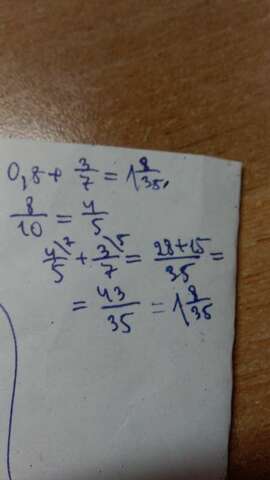 0,8 + 3/7 = 1 8/35.
8/10 = 4/5
4/5 \7 + 3/7 \5 = 28+15/35 =
= 43/35 = 1 8/35